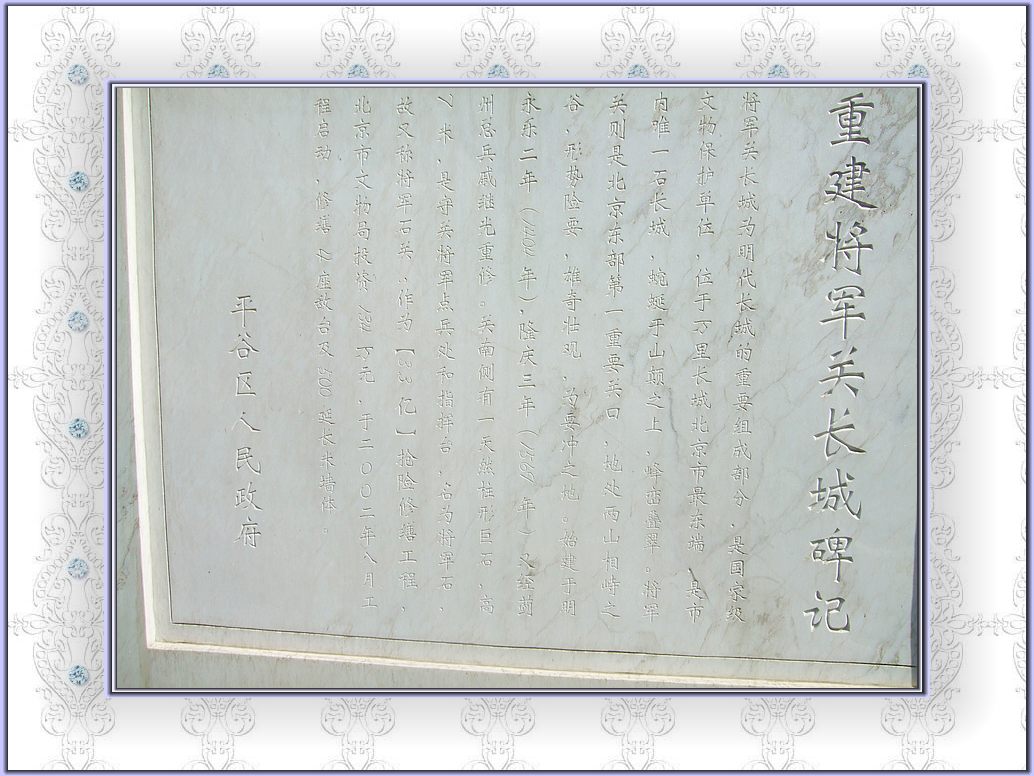 重建将军关长城碑记
将军关长城为明代长城的重要组成部分，是国家级
文物保护单位，位于万里长城北京市最东端，是市
内唯一石长城，蜿蜒于山颠之上，峰峦叠翠。将军
关则是北京东部第一重要关口，地处两山相峙之
谷，形势险要，雄奇壮观，为要冲之地。始建于明
永乐二年（1404年），隆庆三年（1569年）又经蓟
州总兵戚继光重修。关南侧有一天然柱形巨石，高
米，是守关将军点兵处和指挥台，名为将军石，
故又称将军石关。作为【 亿】抢险修缮工程，
北京市文物局投资 万元，于二〇〇二年八月工
程启动，修缮 座敌台及500延长米墙体。
平谷区人民政府